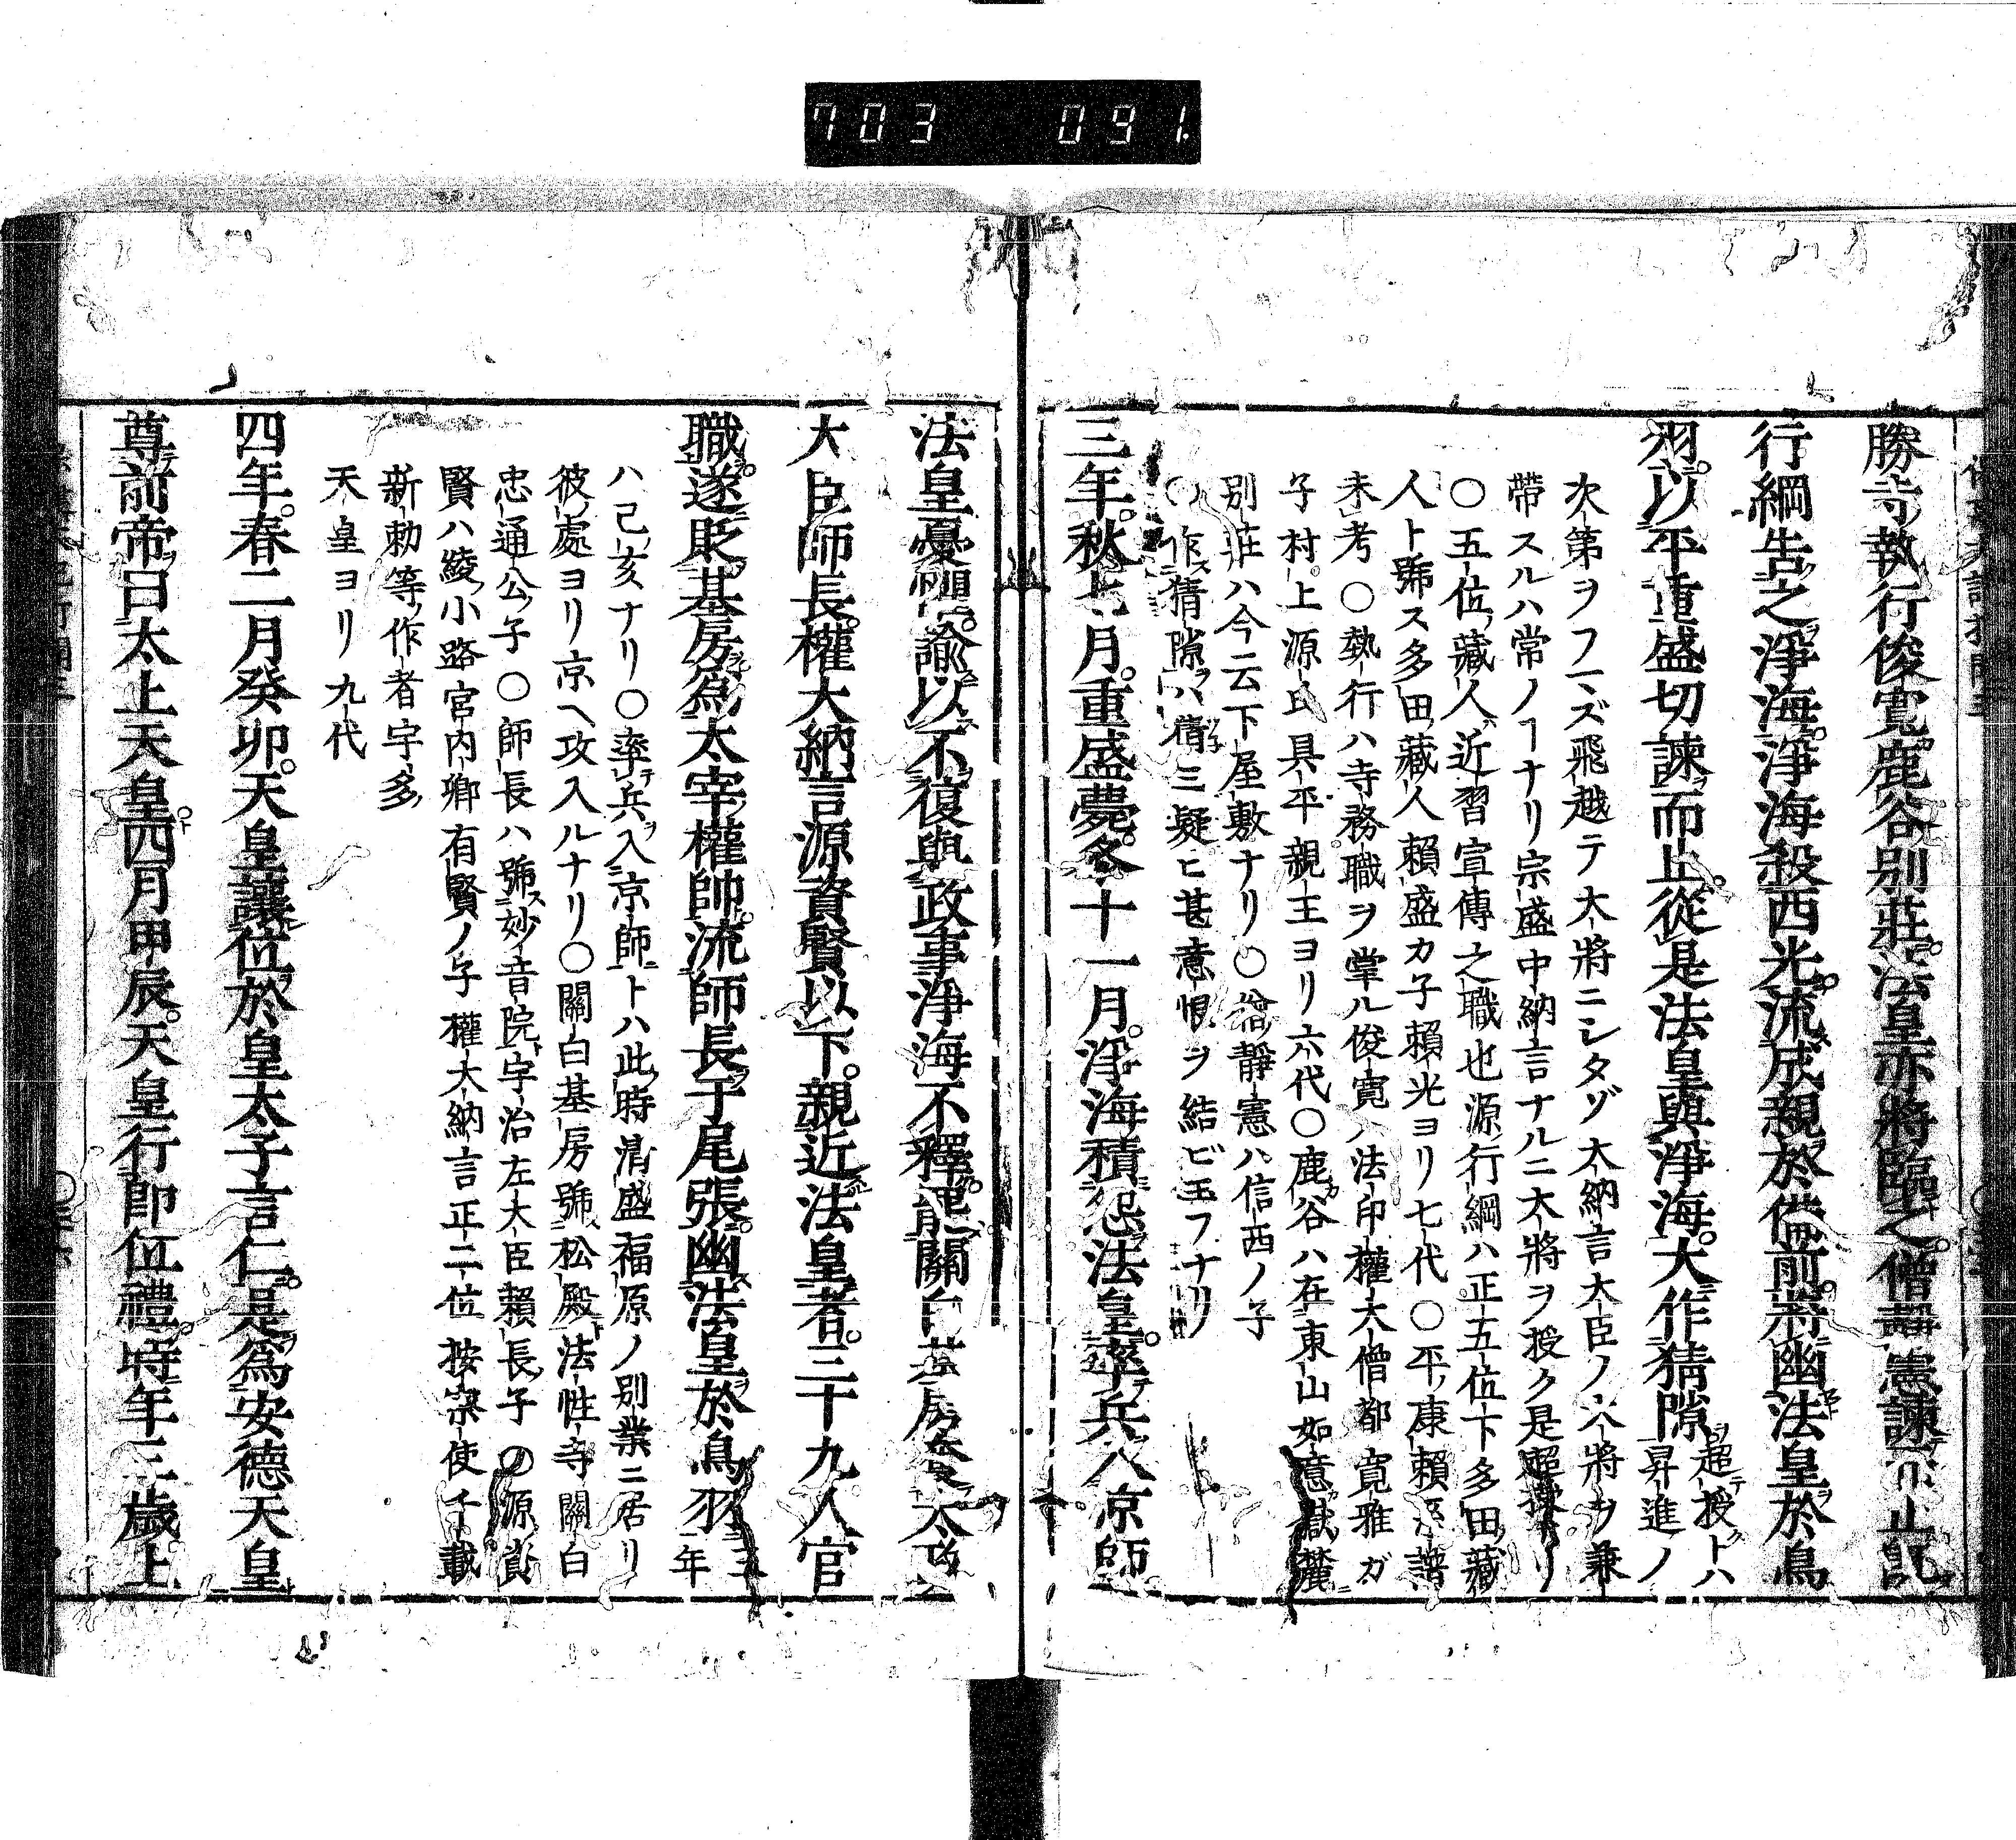 703 091
勝寺執行俊寛鹿谷別莊。法皇亦將臨之。僧靜憲諫 止
行綱告之淨海。淨海殺西光。流成親於備前。將幽法皇於鳥
羽。以平重盛切諫而止。從是法皇與淨海。大作猜隙
超授トハ
昇進ノ
次第ヲフマズ飛越テ大將ニシタゾ大納言大臣ノ大將ヲ兼
帶スルハ常ノヿナリ宗盛中納言ナルニ大將ヲ授ク是超
〇五位藏人近習宣傳之職也源行綱ハ正五位下多田藏
人ト號ス多田藏人賴盛カ子賴光ヨリ七代〇平康賴 譜
未考〇執行ハ寺務職ヲ掌ル俊寛ハ法印權大僧都寛雅ガ
子村上源氏具平親王ヨリ六代〇鹿谷ハ在東山如意嶽麓
別莊ハ今云下屋敷ナリ〇僧靜憲ハ信西ノ子
〇作猜隙ハ猜ミ疑ヒ甚意恨ヲ結ビ玉フナリ
三年。秋七月。重盛薨。冬十一月。淨海積怨法皇。率兵入京師
法皇憂懼。諭以不復與政事淨海不釋。罷關白基房太政
大臣師長。權大納言源資賢以下。親近法皇者。三十九人官
職。遂貶基房爲太宰權帥。流師長于尾張。幽法皇於鳥羽
三年
ハ己亥ナリ〇率兵入京師トハ此時淸盛福原ノ別業ニ居リ
彼處ヨリ京ヘ攻入ルナリ〇關白基房號松殿法性寺關白
忠通公子〇師長ハ號妙音院宇治左大臣賴長子〇源資
賢ハ綾小路宮内卿有賢ノ子權大納言正二位按察使千載
新勅等作者宇多
天皇ヨリ九代
四年。春二月癸卯。天皇讓位於皇太子言仁。是爲安德天皇
尊前帝曰太上天皇。四月甲辰。天皇行即位禮。時年三歲上